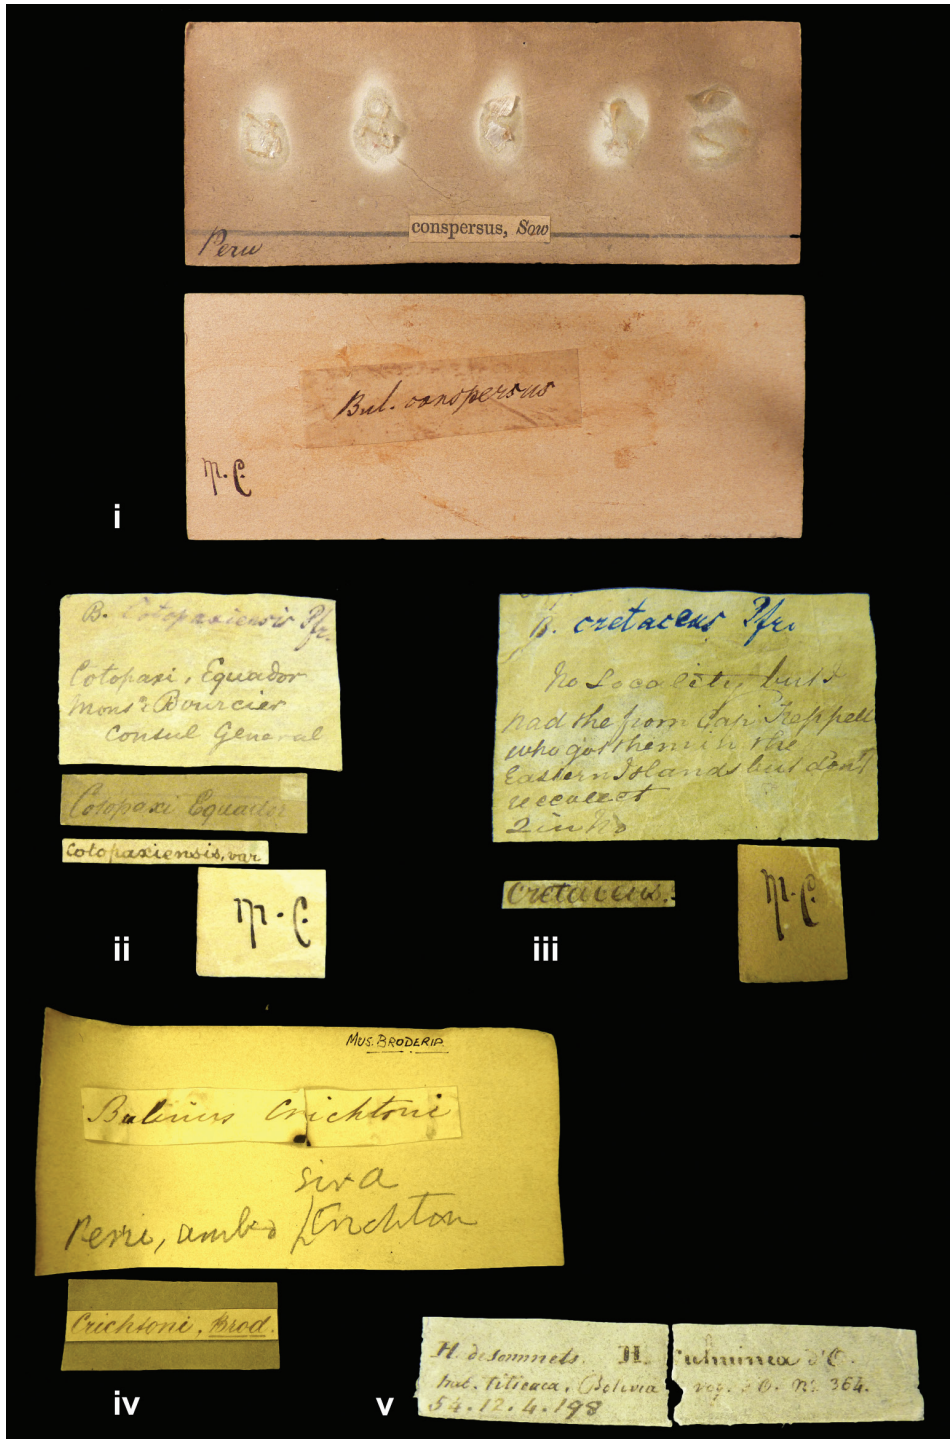 conspersus, Sow
Peru
Bul. conspersus
M. C.
i
B. Cotopaxiensis Pfr.
Cotopaxi, Equador
Monsr Bourcier
Consul General
Cotopaxi Equador
Cotopaxiensis, var
M. C.
ii
B. cretaceus Pfr.
No Locality but I
had the from Capt Keppell
who got them in the
Eastern Islands but don't
reccolect
2 in No
Cretaceus.
M. C.
iii
MUS. BRODERIP
Bulinus Crichtoni
Sir A
Peru, Crichton
Crichtoni, Brod.
iv
H. des sommets. H. culminea d'O.
hab. Titicaca, Bolivia voy. d'O. No. 364.
54.12.4.198
v